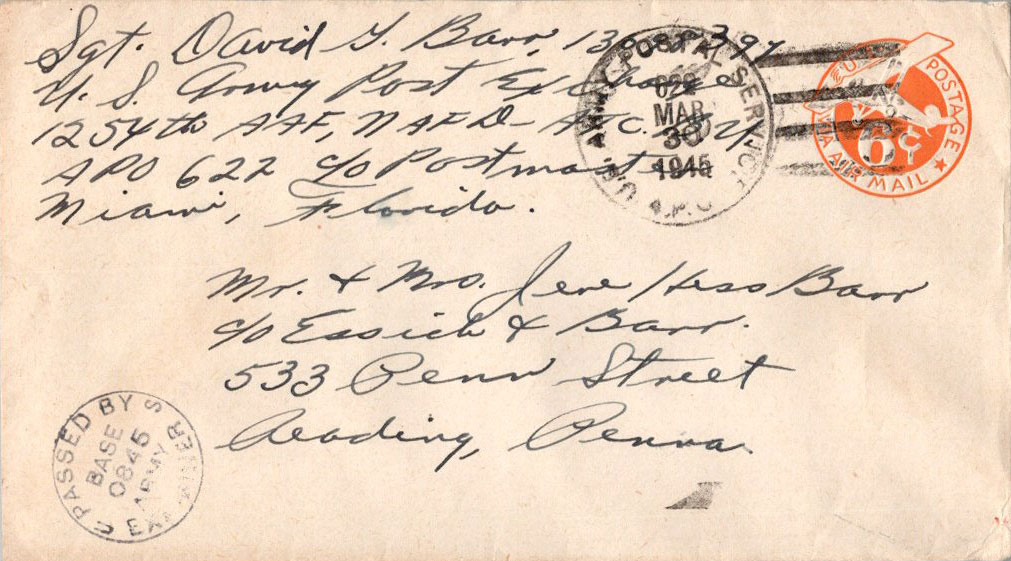 Sgt. David Y. Barr, 13
U. S. Army Post Exchange
1254th AAF, NAFD - ATC.
APO 622 c/o Postmaster
Miami, Florida.
U.S. ARMY POSTAL SERVICE
A.P.O
622
MAR
30
1945
U.S. POSTAGE
6¢
VIA AIR MAIL
Mr. & Mrs. Jere Hess Barr
c/o Essick & Barr.
533 Penn Street
Reading, Penna.
PASSED BY
BASE
0845
ARMY
EXAMINER